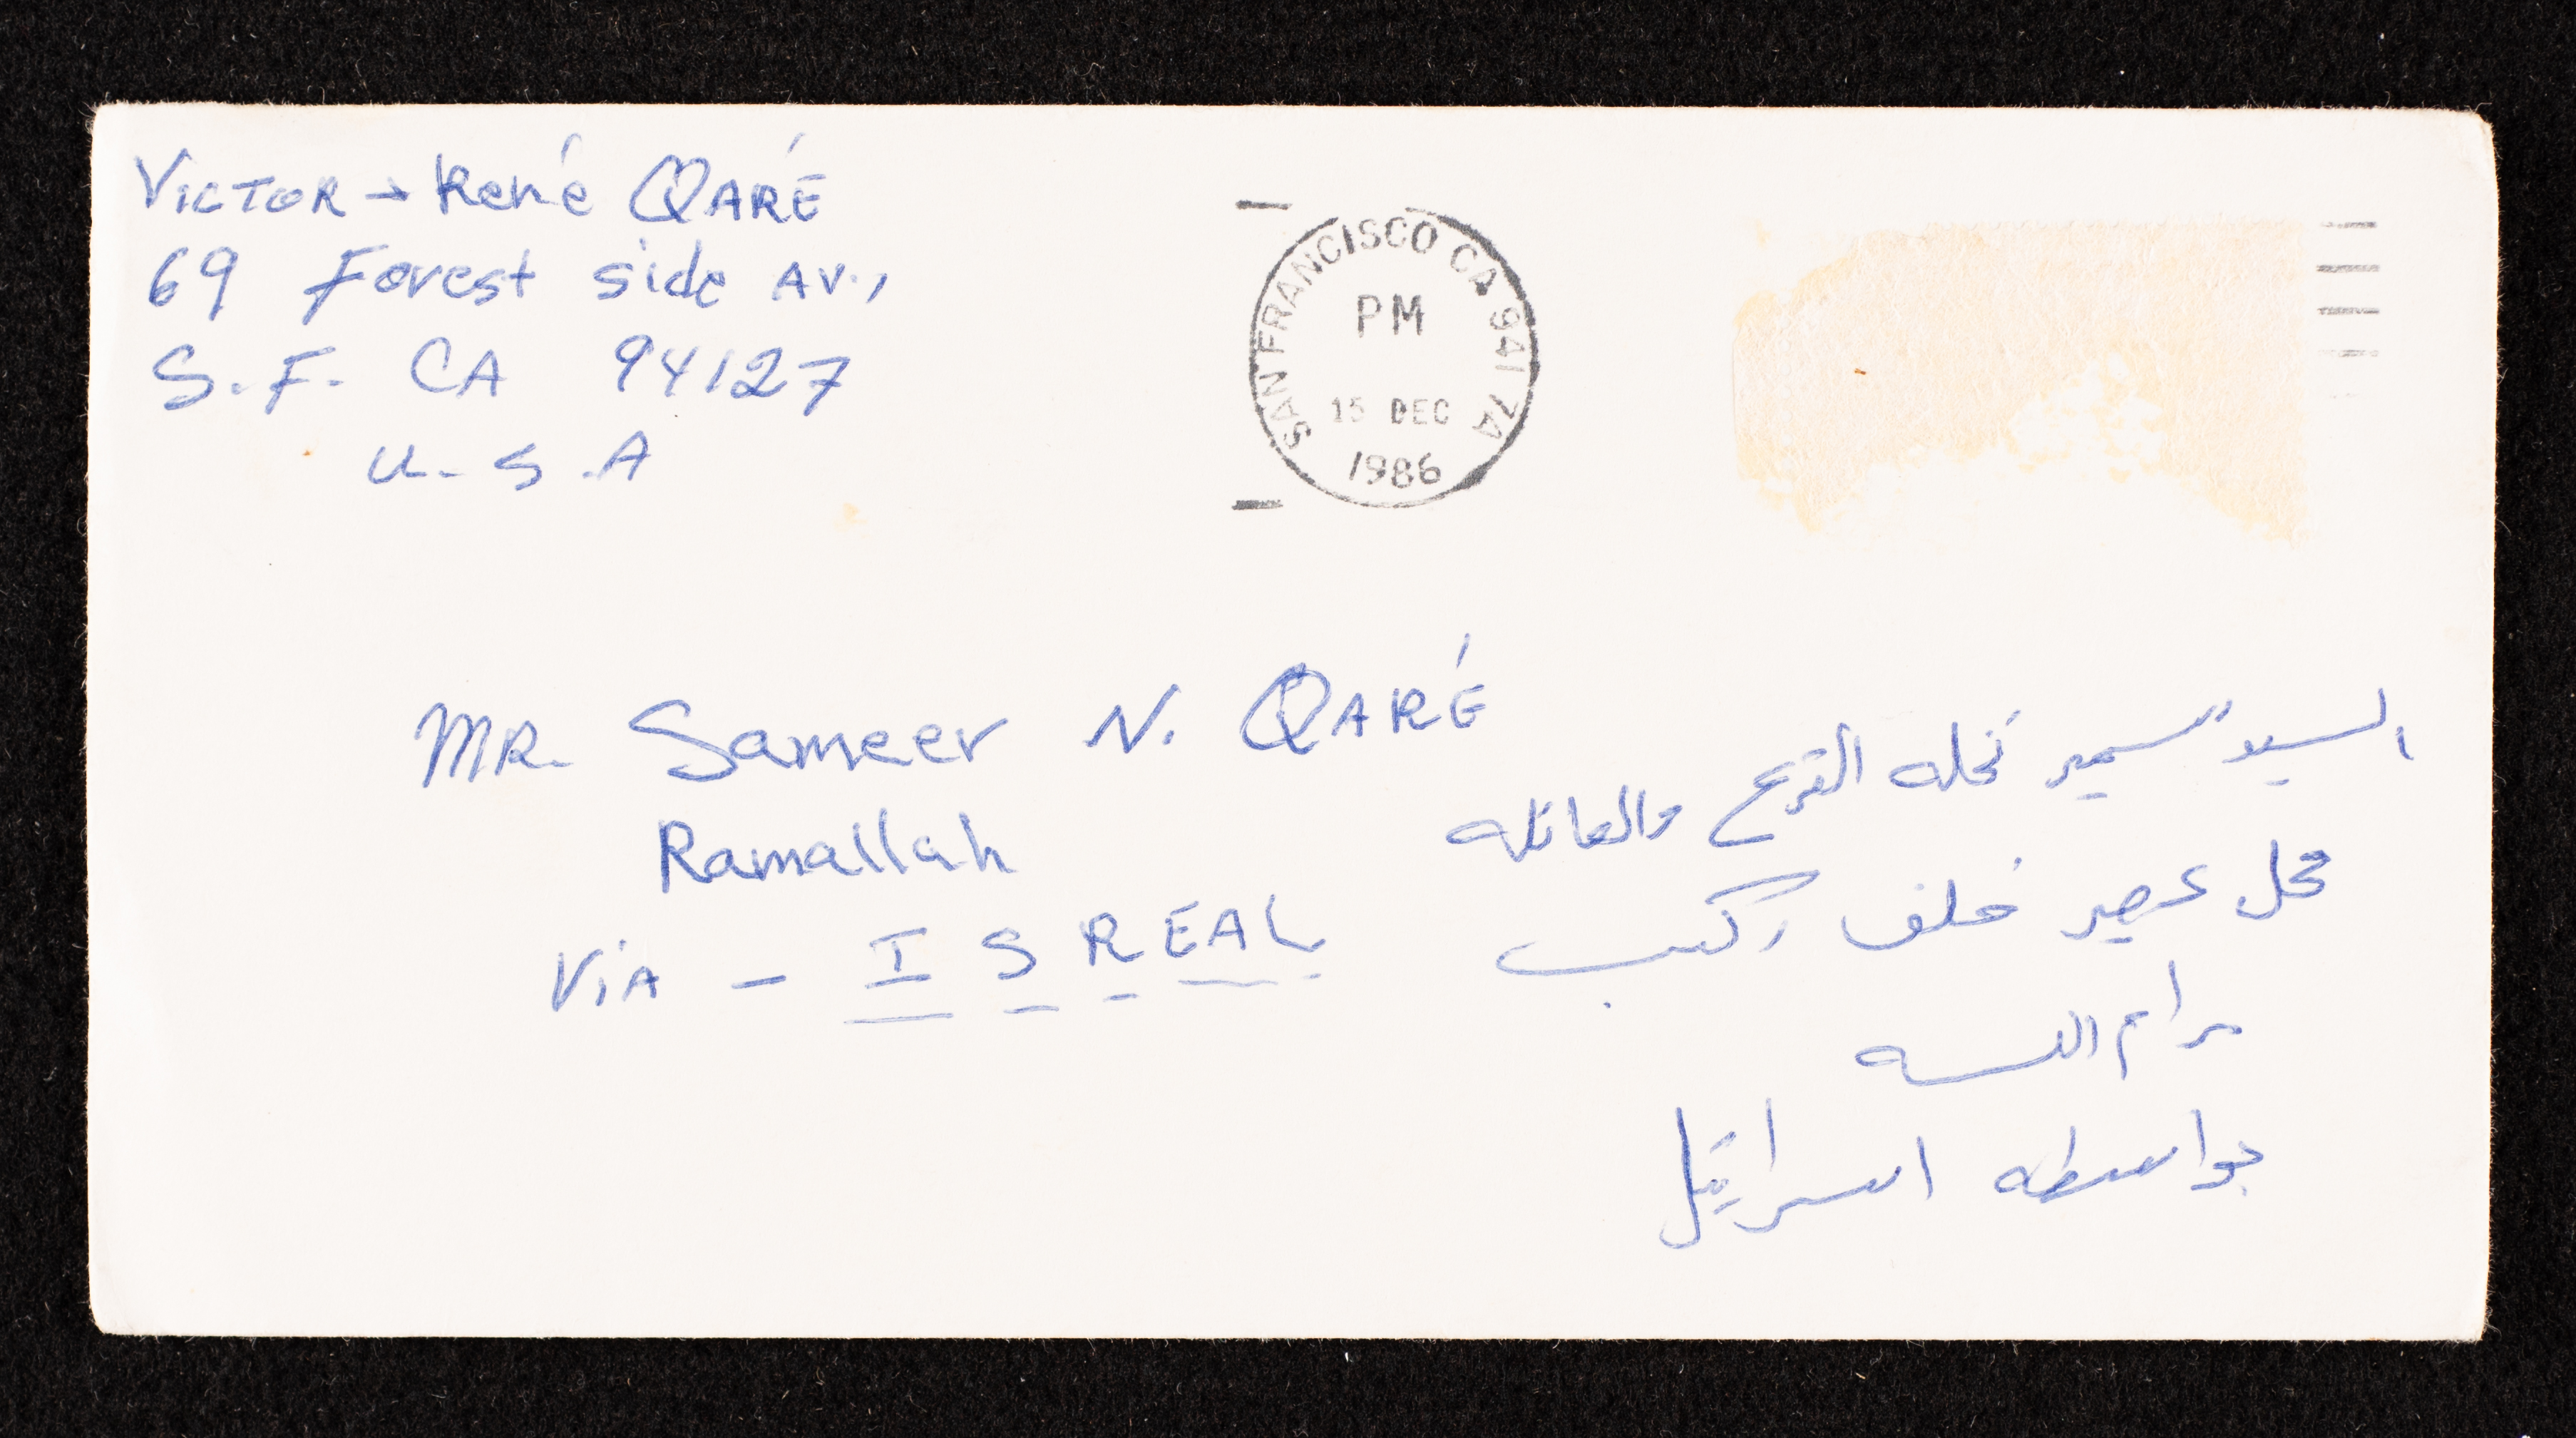 VICTOR → René QARÉ
69 Forest side AV.,
S. F. CA 94127
U. S. A
SAN FRANCISCO CA 941 7A
PM
15 DEC
1986
MR. Sameer N. QARÉ
Ramallah
VIA - ISREAL
السيد سمير نخله القرع والعائله
محل عصير خلف ركب
رام الله
بواسطه اسرائيل